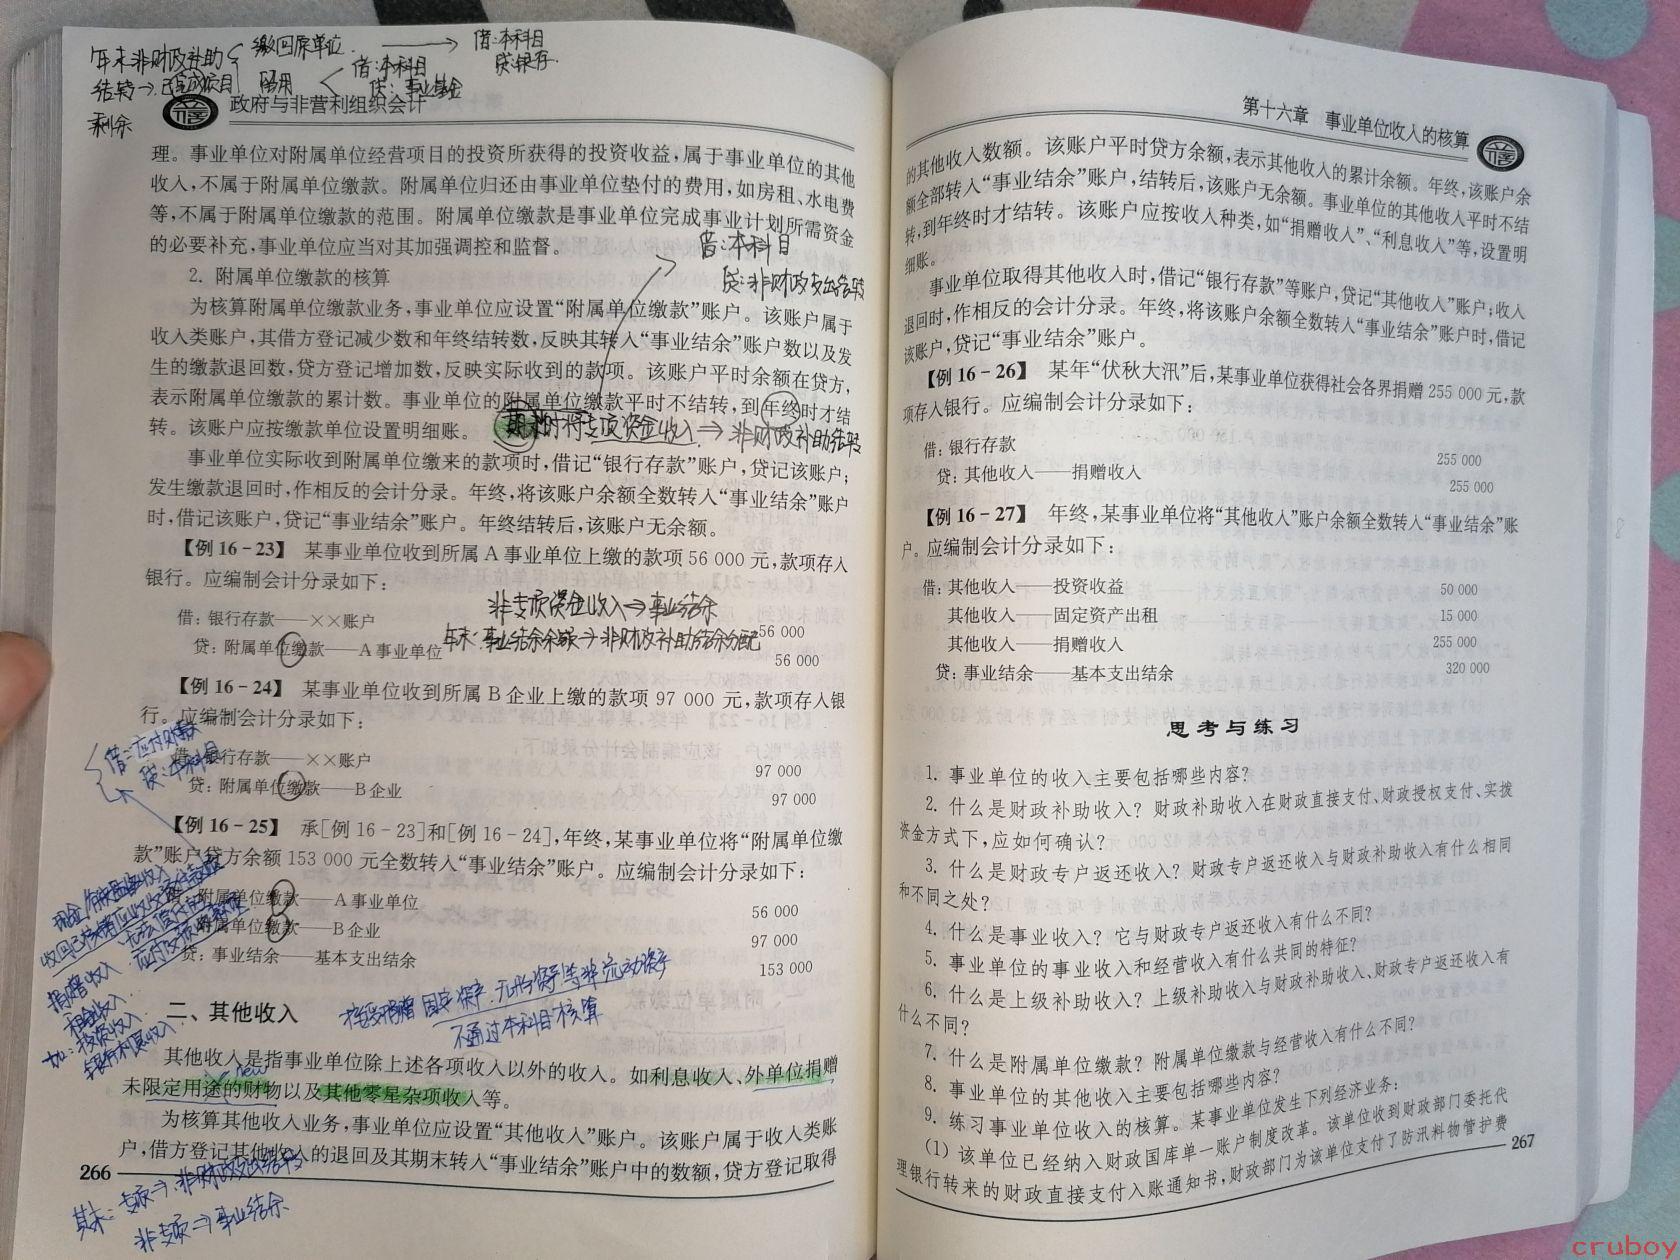 年末非财政补助
结转→已完成项目
剩余
缴回原单位 → 借:本科目
贷:银存.
留用
借:本科目
贷:事业基金
政府与非营利组织会计
理。事业单位对附属单位经营项目的投资所获得的投资收益,属于事业单位的其他
收入,不属于附属单位缴款。附属单位归还由事业单位垫付的费用,如房租、水电费
等,不属于附属单位缴款的范围。附属单位缴款是事业单位完成事业计划所需资金
的必要补充,事业单位应当对其加强调控和监督。
借:本科目
贷:非财政支出结转
2. 附属单位缴款的核算
为核算附属单位缴款业务,事业单位应设置“附属单位缴款”账户。该账户属于
收入类账户,其借方登记减少数和年终结转数,反映其转入“事业结余”账户数以及发
生的缴款退回数,贷方登记增加数,反映实际收到的款项。该账户平时余额在贷方,
表示附属单位缴款的累计数。事业单位的附属单位缴款平时不结转,到年终时才结
转。该账户应按缴款单位设置明细账。
期末时将专项资金收入→非财政补助结转
事业单位实际收到附属单位缴来的款项时,借记“银行存款”账户,贷记该账户;
发生缴款退回时,作相反的会计分录。年终,将该账户余额全数转入“事业结余”账户
时,借记该账户,贷记“事业结余”账户。年终结转后,该账户无余额。
【例 16-23】 某事业单位收到所属 A 事业单位上缴的款项 56 000 元,款项存入
银行。应编制会计分录如下:
非专项资金收入→事业结余
年末:事业结余余额→非财政补助结余分配
借: 银行存款——××账户 56 000
贷: 附属单位缴款——A 事业单位 56 000
【例 16-24】 某事业单位收到所属 B 企业上缴的款项 97 000 元,款项存入银
行。应编制会计分录如下:
借:应付账款
贷:本科目
借: 银行存款——××账户 97 000
贷: 附属单位缴款——B 企业 97 000
【例 16-25】 承[例 16-23]和[例 16-24],年终,某事业单位将“附属单位缴
款”账户贷方余额 153 000 元全数转入“事业结余”账户。应编制会计分录如下:
借: 附属单位缴款——A 事业单位 56 000
附属单位缴款——B 企业 97 000
贷: 事业结余——基本支出结余 153 000
现金/存货盘盈收入
收回已核销应收及预付款项
无法偿付的
应付及预收款项
捐赠收入
租金收入
如:投资收入
银行利息收入
二、其他收入
接受捐赠 固定资产、无形资产等非流动资产
不通过本科目核算
其他收入是指事业单位除上述各项收入以外的收入。如利息收入、外单位捐赠
new
未限定用途的财物以及其他零星杂项收入等。
为核算其他收入业务,事业单位应设置“其他收入”账户。该账户属于收入类账
户,借方登记其他收入的退回及其期末转入“事业结余”账户中的数额,贷方登记取得
266
期末:专项→非财政补助结转
非专项→事业结余
第十六章 事业单位收入的核算
的其他收入数额。该账户平时贷方余额,表示其他收入的累计余额。年终,该账户余
额全部转入“事业结余”账户,结转后,该账户无余额。事业单位的其他收入平时不结
转,到年终时才结转。该账户应按收入种类,如“捐赠收入”、“利息收入”等,设置明
细账。
事业单位取得其他收入时,借记“银行存款”等账户,贷记“其他收入”账户;收入
退回时,作相反的会计分录。年终,将该账户余额全数转入“事业结余”账户时,借记
该账户,贷记“事业结余”账户。
【例 16-26】 某年“伏秋大汛”后,某事业单位获得社会各界捐赠 255 000 元,款
项存入银行。应编制会计分录如下:
借: 银行存款 255 000
贷: 其他收入——捐赠收入 255 000
【例 16-27】 年终,某事业单位将“其他收入”账户余额全数转入“事业结余”账
户。应编制会计分录如下:
借: 其他收入——投资收益 50 000
其他收入——固定资产出租 15 000
其他收入——捐赠收入 255 000
贷: 事业结余——基本支出结余 320 000
思考与练习
1. 事业单位的收入主要包括哪些内容?
2. 什么是财政补助收入? 财政补助收入在财政直接支付、财政授权支付、实拨
资金方式下,应如何确认?
3. 什么是财政专户返还收入? 财政专户返还收入与财政补助收入有什么相同
和不同之处?
4. 什么是事业收入? 它与财政专户返还收入有什么不同?
5. 事业单位的事业收入和经营收入有什么共同的特征?
6. 什么是上级补助收入? 上级补助收入与财政补助收入、财政专户返还收入有
什么不同?
7. 什么是附属单位缴款? 附属单位缴款与经营收入有什么不同?
8. 事业单位的其他收入主要包括哪些内容?
9. 练习事业单位收入的核算。某事业单位发生下列经济业务:
(1) 该单位已经纳入财政国库单一账户制度改革。该单位收到财政部门委托代
理银行转来的财政直接支付入账通知书,财政部门为该单位支付了防汛料物管护费
267
cruboy